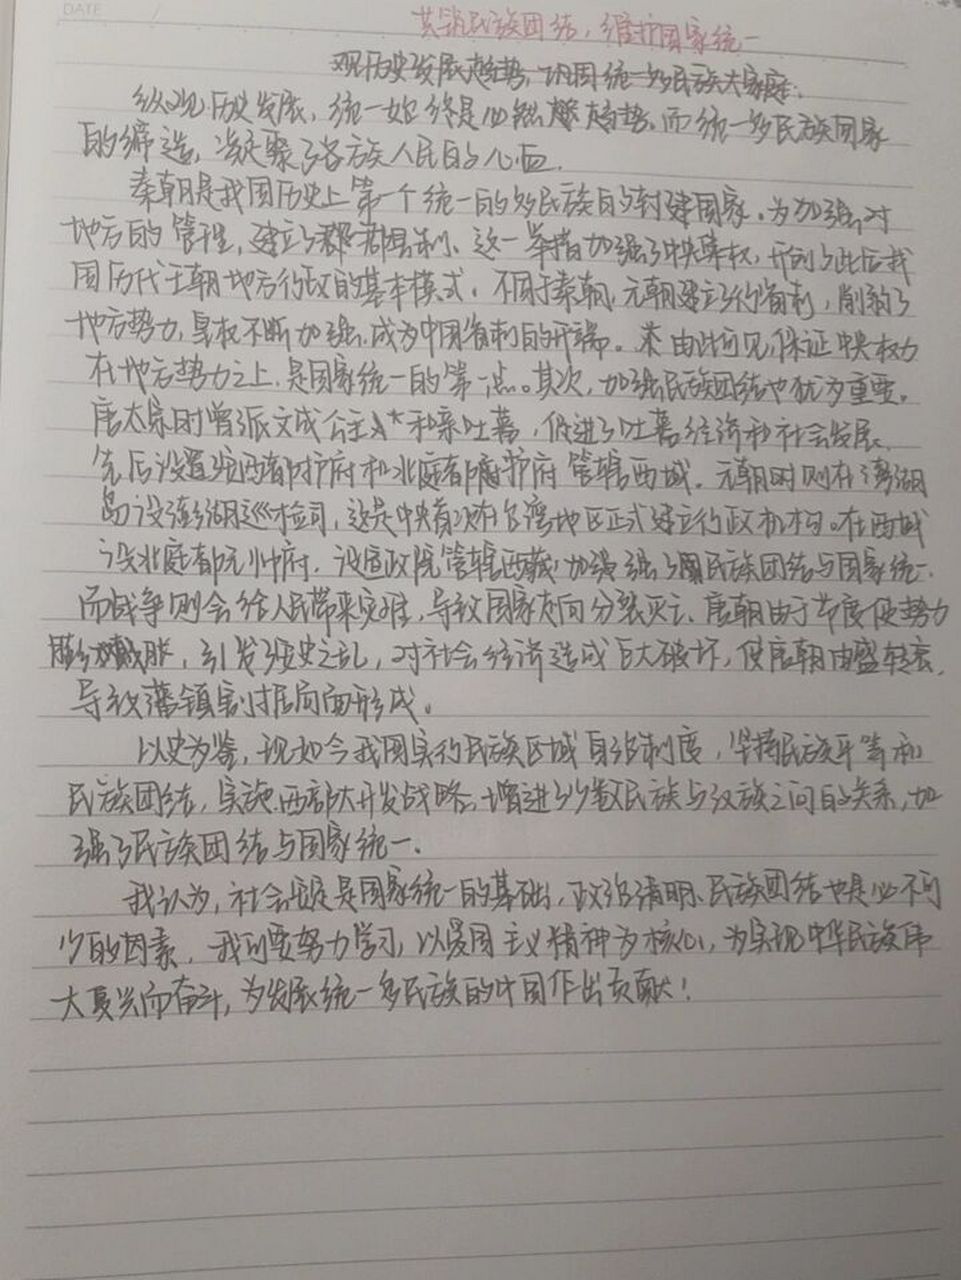 DATE
共铸民族团结，维护国家统一
观历史发展趋势，巩固统一多民族大家庭.
纵观历史发展，统一始终是必然趋势，而统一多民族国家
的缔造，凝聚了各族人民的心血.
秦朝是我国历史上第一个统一的多民族的封建国家.为加强对
地方的管理，建立了郡县制.这一举措加强了中央集权，开创了此后我
国历代王朝地方行政的基本模式.不同于秦朝，元朝建立了行省制，削弱了
地方势力，皇权不断加强，成为中国省制的开端。由此可见，保证中央权力
在地方势力之上，是国家统一的第一点。其次，加强民族团结也尤为重要。
唐太宗时曾派文成公主入*和亲吐蕃，促进了吐蕃经济和社会发展.
先后设置安西都护府和北庭都护府管辖西域.元朝时则在澎湖
岛设澎湖巡检司，这是中央首次在台湾地区正式建立行政机构.在西域
设北庭都元帅府.设宣政院管辖西藏，加强了民族团结与国家统一.
而战争则会给人民带来灾难，导致国家走向分裂灭亡.唐朝由于节度使势力
膨胀，引发安史之乱，对社会经济造成巨大破坏，使唐朝由盛转衰.
导致藩镇割据局面形成。
以史为鉴，现如今我国实行民族区域自治制度，坚持民族平等和
民族团结，实施西部大开发战略，增进了少数民族与汉族之间的关系，加
强了民族团结与国家统一.
我认为，社会安定是国家统一的基础，政治清明、民族团结也是必不可
少的因素.我们要努力学习，以爱国主义精神为核心，为实现中华民族伟
大复兴而奋斗，为发展统一多民族的中国作出贡献！